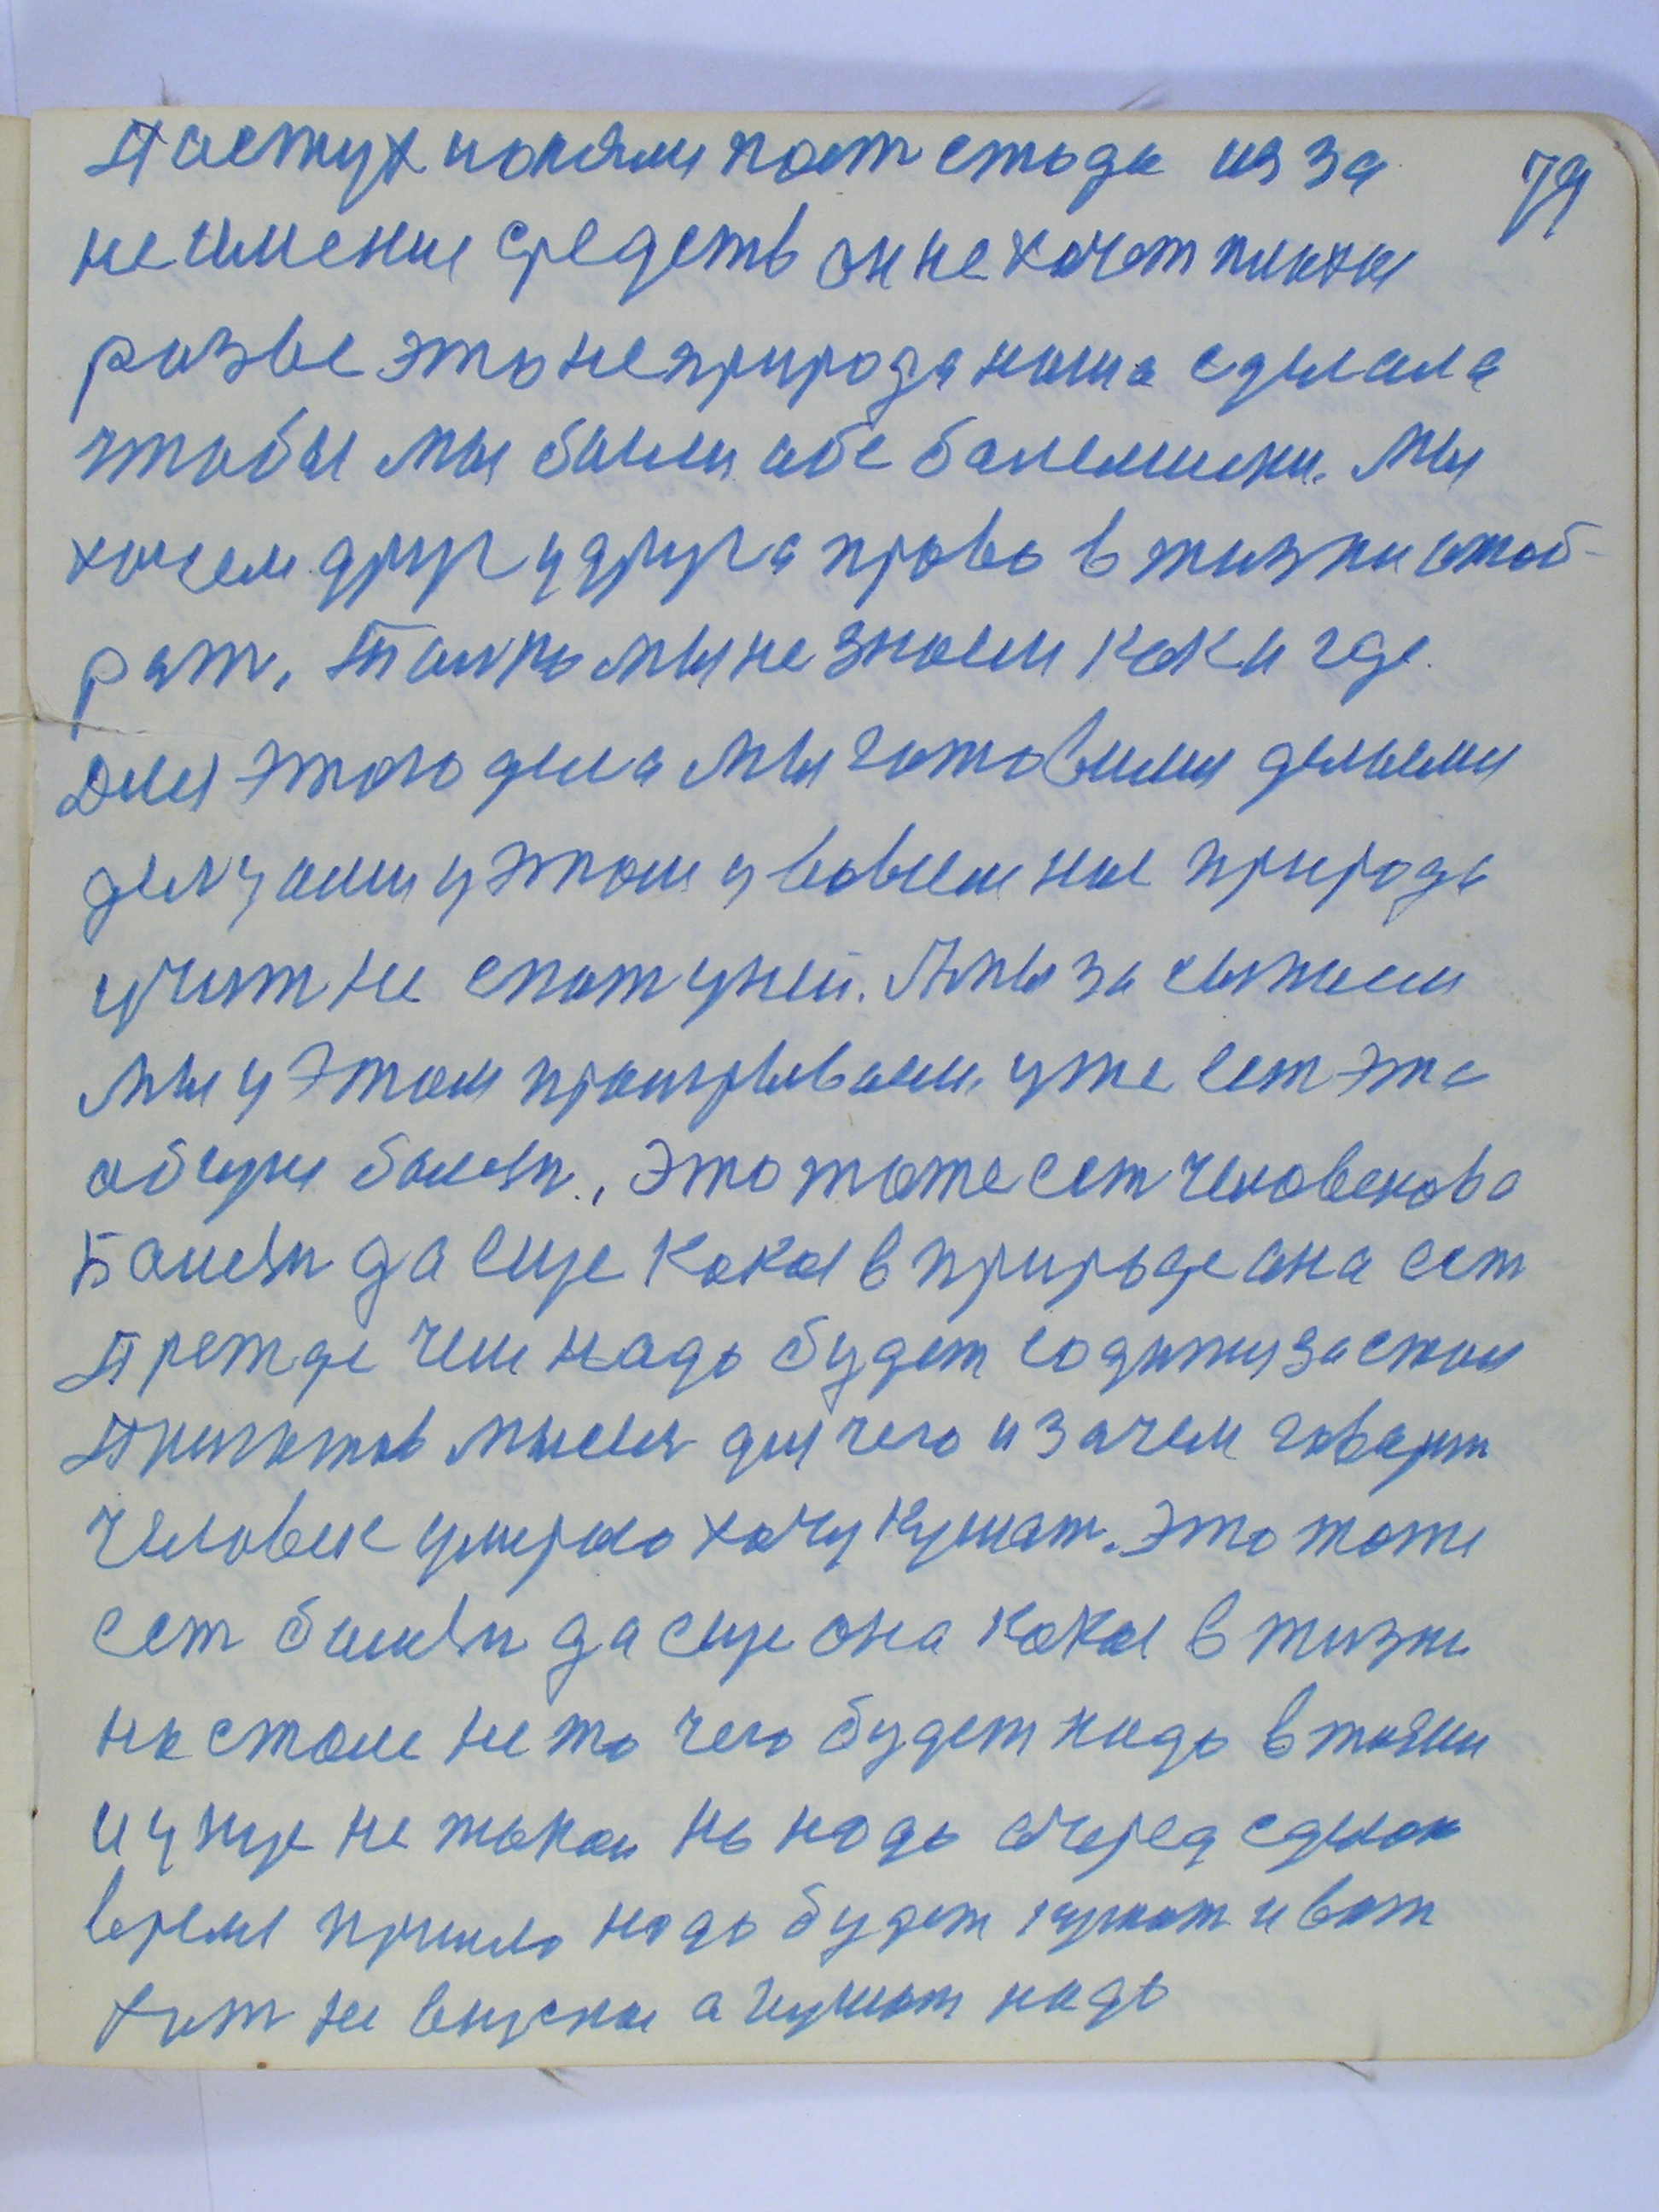 79
Пастух нонями пот стада из за
не имения средств он не хочет пикти
разве это не природа наша сделала
чтобы мы были обе болеми. Мы
хочем друг у друга право в жизни отоб-
рат, Толко мы не знаем как и где.
Для этого дела мы готовимся делаем
делу у этом у вовсем нас природа
учит не спат у ней. Мы за
мы у этом проигриваем. уже ест эта
общая болезн., Это тоже ест человекова
Болезн да еще какая в природе она ест
Прежде чем надо будет садитися за стол
Приготов мысля для чего и зачем говарит
человек умераю хочу кушат. Это тоже
ест болезн да еще она какая в жизни
на столе не то чего будет надо в жизни
и у щце не такои но надо очеред сделат
время пришло надо будет кушат и вот
хит не вкусны а кушат надо